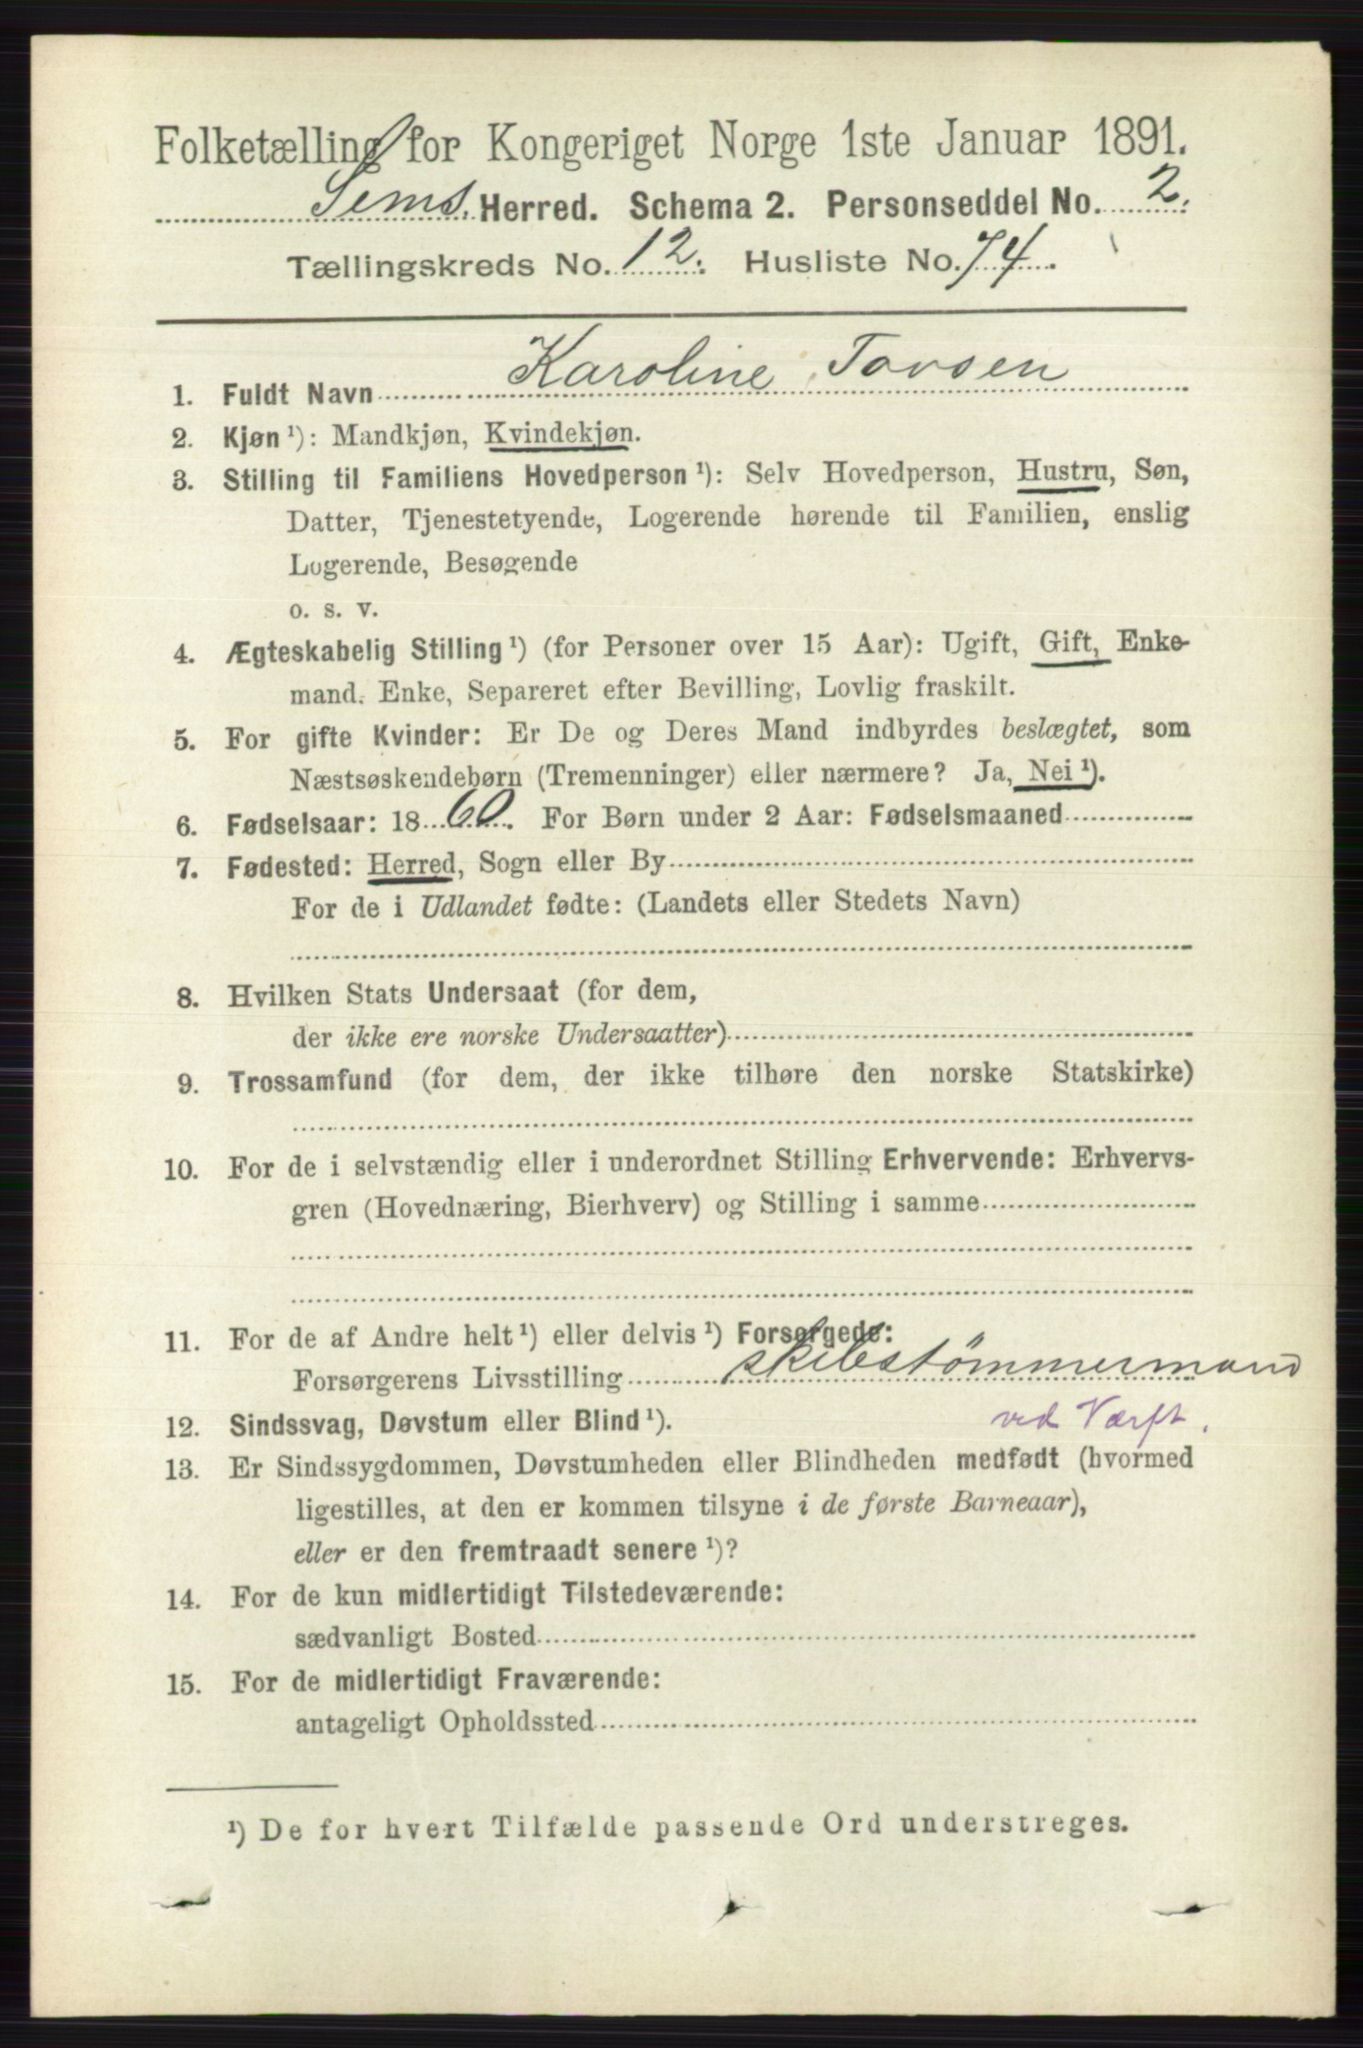 Folketælling for Kongeriget Norge 1ste Januar 1891.
Sems Herred. Schema 2. Personseddel No. 2.
Tællingskreds No. 12. Husliste No. 74.
1. Fuldt Navn Karoline Tovsen
2. Kjøn ¹): Mandkjøn, Kvindekjøn.
3. Stilling til Familiens Hovedperson ¹): Selv Hovedperson, Hustru, Søn,
Datter, Tjenestetyende, Logerende hørende til Familien, enslig
Logerende, Besøgende
o. s. v.
4. Ægteskabelig Stilling ¹) (for Personer over 15 Aar): Ugift, Gift, Enke-
mand. Enke, Separeret efter Bevilling, Lovlig fraskilt.
5. For gifte Kvinder: Er De og Deres Mand indbyrdes beslægtet, som
Næstsøskendebørn (Tremenninger) eller nærmere? Ja, Nei ¹).
6. Fødselsaar: 1860. For Børn under 2 Aar: Fødselsmaaned
7. Fødested: Herred, Sogn eller By
For de i Udlandet fødte: (Landets eller Stedets Navn)
8. Hvilken Stats Undersaat (for dem,
der ikke ere norske Undersaatter)
9. Trossamfund (for dem, der ikke tilhøre den norske Statskirke)
10. For de i selvstændig eller i underordnet Stilling Erhvervende: Erhvervs-
gren (Hovednæring, Bierhverv) og Stilling i samme
11. For de af Andre helt ¹) eller delvis ¹) Forsørgede:
Forsørgerens Livsstilling skibstømmermand
12. Sindssvag, Døvstum eller Blind ¹). ved Værft.
13. Er Sindssygdommen, Døvstumheden eller Blindheden medfødt (hvormed
ligestilles, at den er kommen tilsyne i de første Barneaar),
eller er den fremtraadt senere ¹)?
14. For de kun midlertidigt Tilstedeværende:
sædvanligt Bosted
15. For de midlertidigt Fraværende:
antageligt Opholdssted
¹) De for hvert Tilfælde passende Ord understreges.